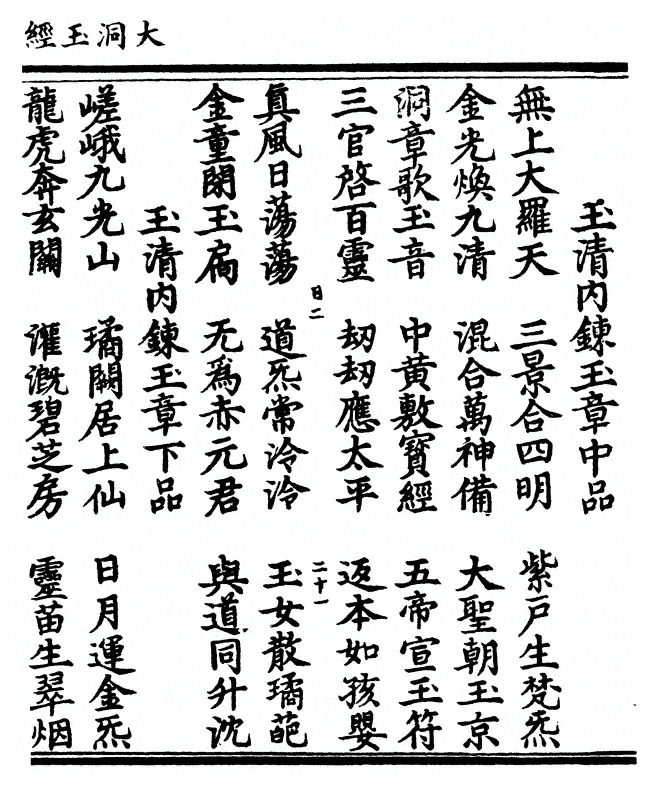 大洞玉經
玉清内鍊玉章中品
無上大羅天 三景合四明 紫戸生梵炁
金光煥九清 混合萬神備 大聖朝玉京
洞章歌玉音 中黄敷寶經 五帝宣玉符
三官啓百靈 劫劫應太平 返本如孩嬰
日二 二十一
真風日蕩蕩 道炁常泠泠 玉女散璚葩
金童閉玉扃 无爲赤元君 與道同升沈
玉清内鍊玉章下品
嵯峨九光山 璚闕居上仙 日月運金炁
龍虎奔玄關 灌溉碧芝房 靈苗生翠烟